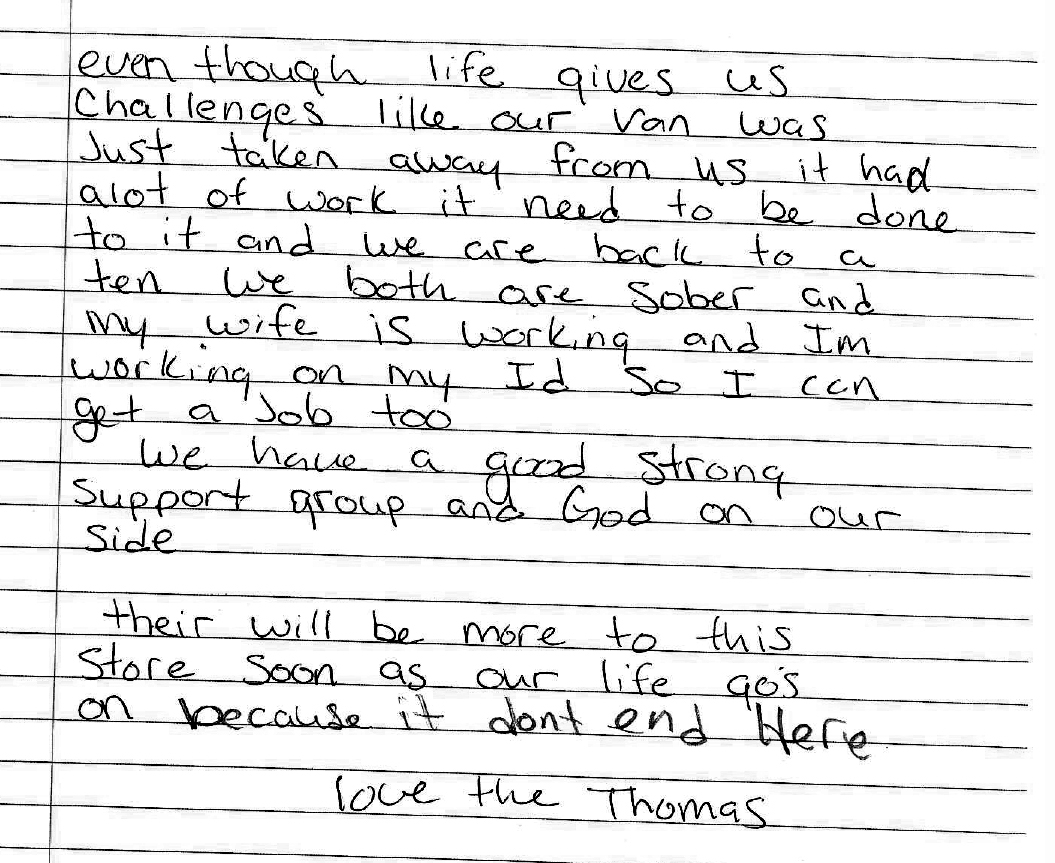 even though life gives us
Challenges like our van was
Just taken away from us it had
alot of work it need to be done
to it and we are back to a
ten we both are sober and
my wife is working and Im
working on my Id so I can
get a Job too
we have a good strong
support group and God on our
side
their will be more to this
Store soon as our life go's
on because it dont end Here
love the Thomas